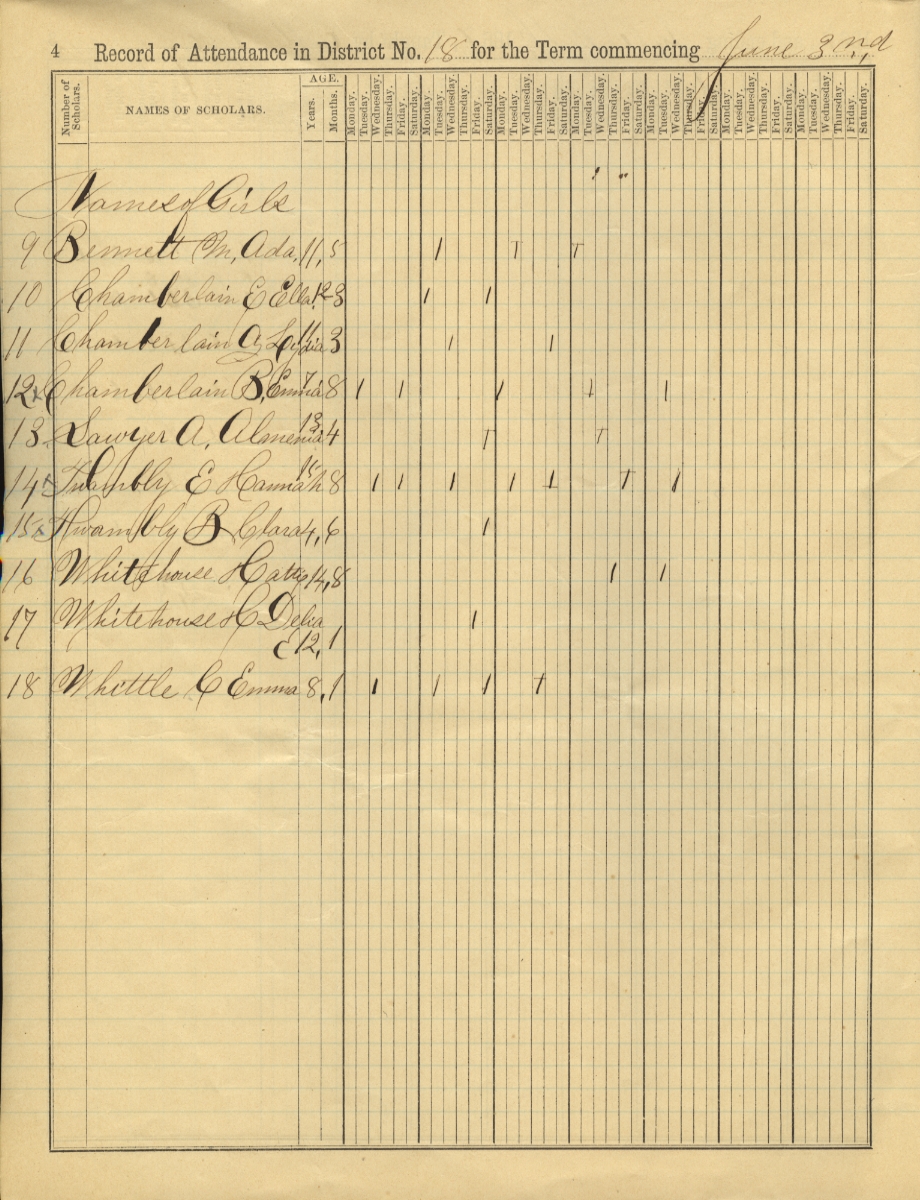 4 Record of Attendance in District No. 18 for the Term commencing June 3nd,
Number of Scholars.
NAMES OF SCHOLARS.
AGE.
Years. Months. Monday. Tuesday. Wednesday. Thursday. Friday. Saturday. Monday. Tuesday. Wednesday. Thursday. Friday. Saturday. Monday. Tuesday. Wednesday. Thursday. Friday. Saturday. Monday. Tuesday. Wednesday. Thursday. Friday. Saturday. Monday. Tuesday. Wednesday. Thursday. Friday. Saturday. Monday. Tuesday. Wednesday. Thursday. Friday. Saturday. Monday. Tuesday. Wednesday. Thursday. Friday. Saturday.
Names of Girls
9 Bennett M, Ada, 11, 5
10 Chamberlain E Ella 12 3
11 Chamberlain A, Lydia 11 3
12 x Chamberlain B, Emma 7 8
13. Sawyer A. Almenia 13 4
14 E Hannah 15 8
15 x B Clara 4, 6
16 Whitehouse Hattie 14, 8
17 Whitehouse H Delia
E 12, 1
18 Whittle C Emma 8, 1